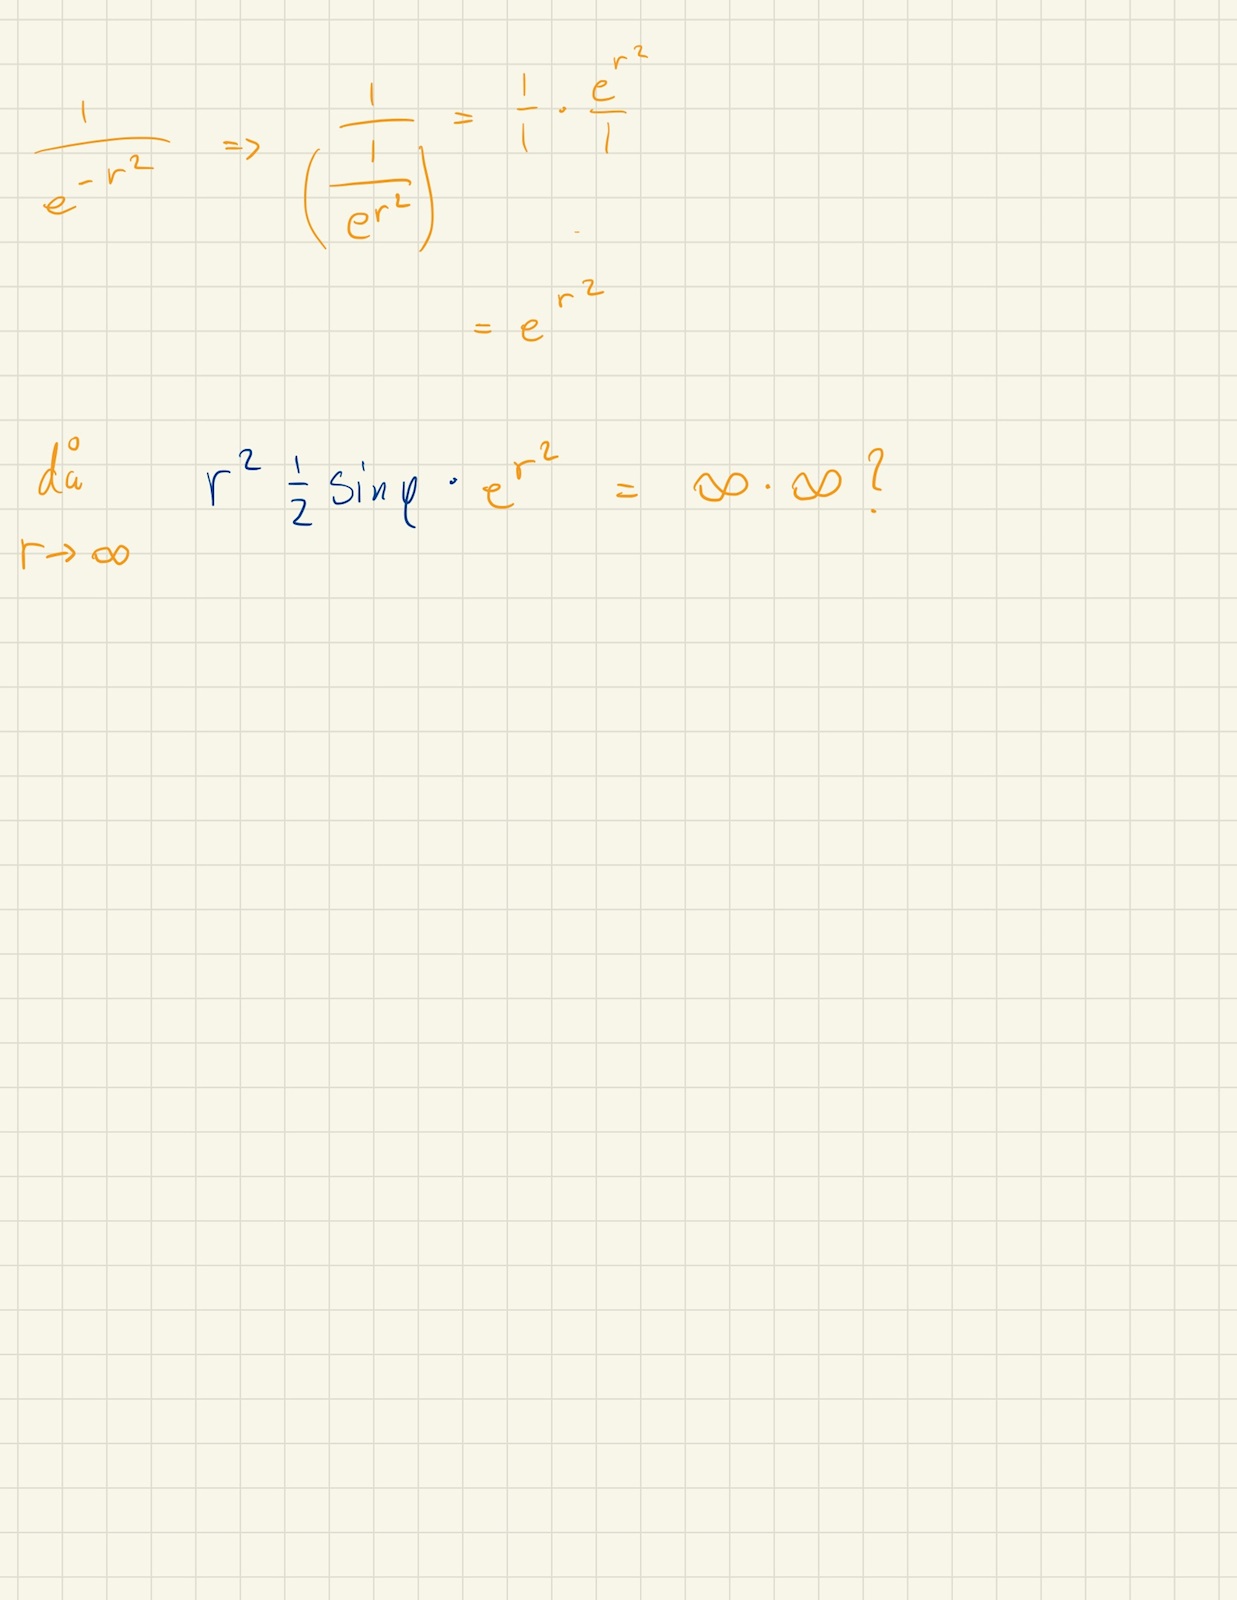 1/e^{-r^2} => 1/(1/e^{r^2}) = 1/1 · e^{r^2}/1
= e^{r^2}
då r^2 1/2 sin φ · e^{r^2} = ∞ · ∞ ?
r → ∞